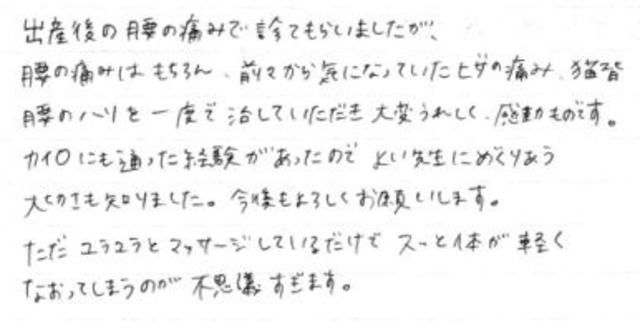 出産後の腰の痛みで診てもらいましたが、
腰の痛みはもちろん、前々から気になっていたヒザの痛み、猫背
腰のハリを一度で治していただき大変うれしく、感動ものです。
カイロにも通った経験があったのでよい先生にめぐりあう
大切さも知りました。今後もよろしくお願いします。
ただユラユラとマッサージしているだけでスーッと体が軽く
なおってしまうのが不思議すぎます。